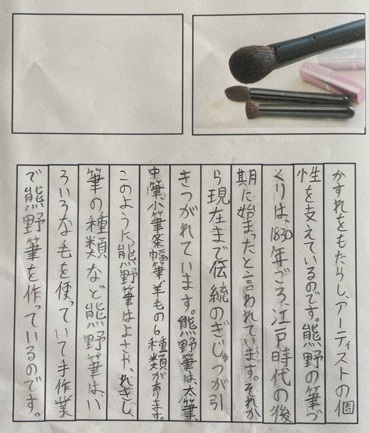 かすれをもたらし、アーティストの個
性を支えているのです。熊野の筆づ
くりは、1830年ごろ、江戸時代の後
期に始まったと言われています。それか
ら現在まで伝統のぎじゅつが引
きつがれています。熊野筆は、太筆、
中筆、小筆、条幅筆、羊毛の6種類があります。
このように、熊野筆はよさや、れきし、
筆の種類など熊野筆は、い
ろいろな毛を使っていて手作業
で熊野筆を作っているのです。